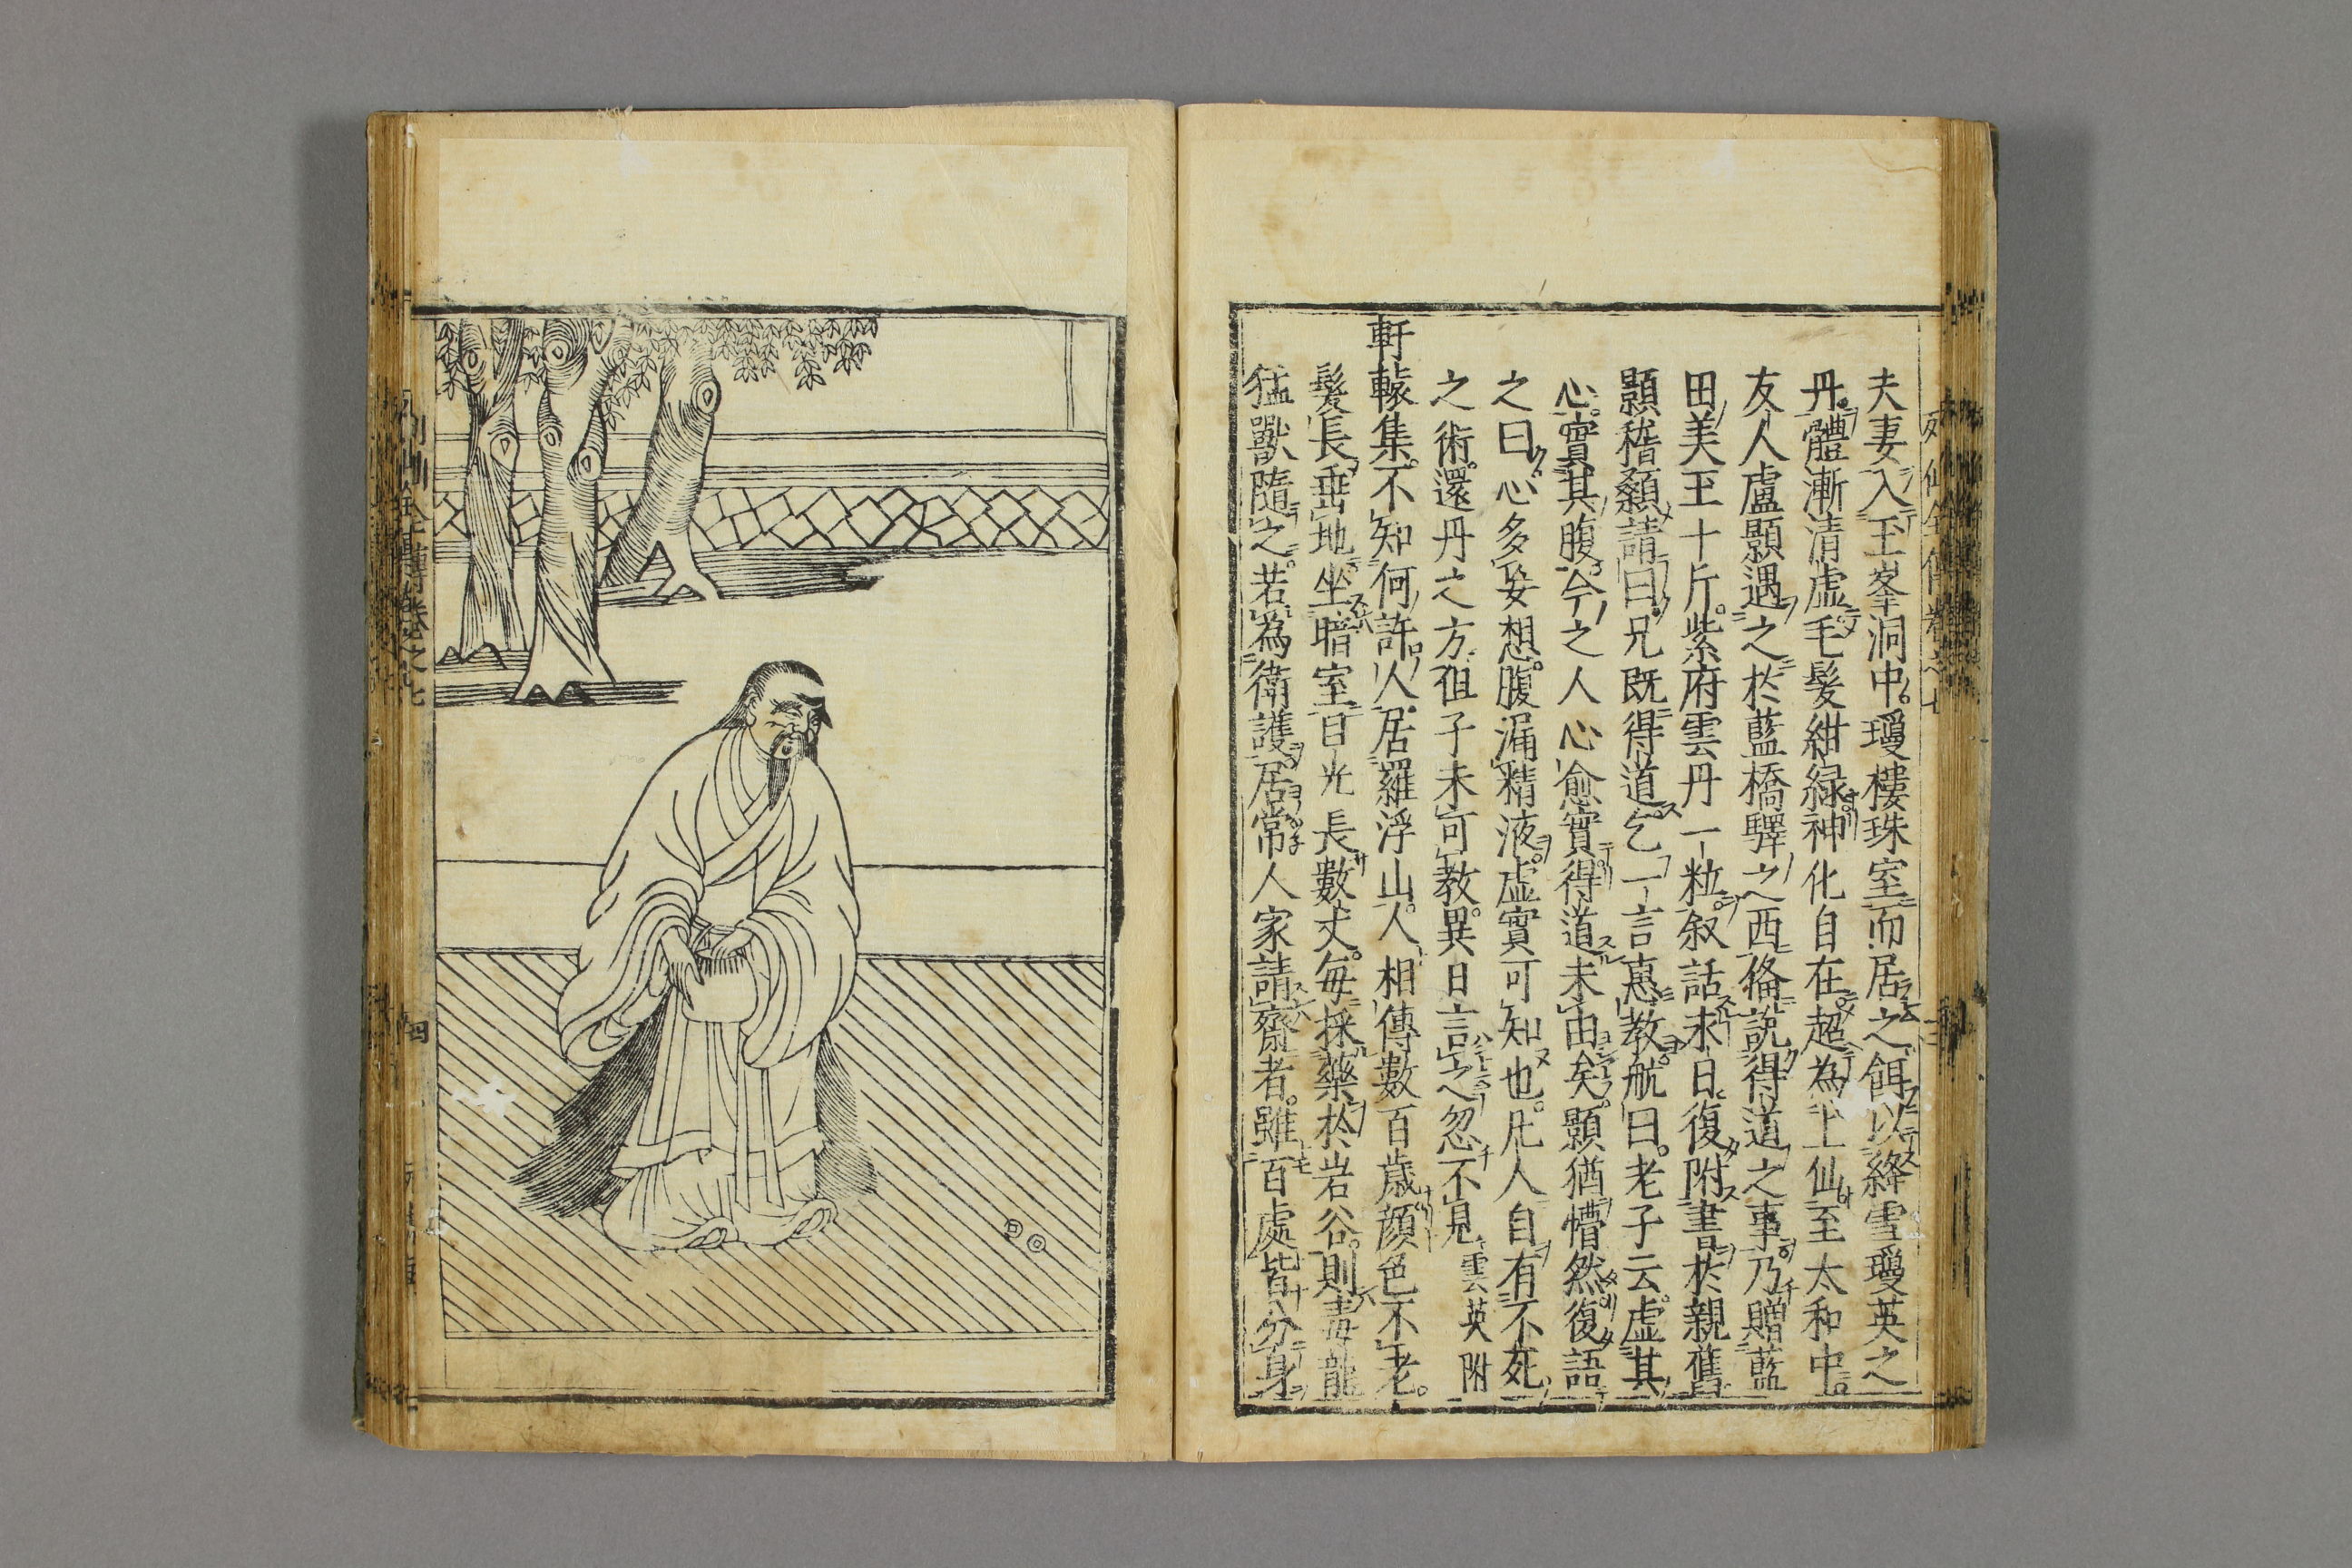 夫妻入玉峯洞中。瓊樓珠室而居之餌以絳雪瓊英之
丹。體漸清虛毛髮紺綠神化自在超為上仙至太和中。
友人盧顥遇之於藍橋驛之西俻說得道之事乃贈藍
田美玉十斤。紫府雲丹一粒。叙話永日。復附書於親舊
顥稽顙請曰。兄既得道乞一言惠教航曰。老子云虛其
心。實其腹。今之人心愈實得道未由矣。顥猶懵然復語
之曰。心多妄想。腹漏精液。虛實可知也。凡人自有不死
之術。還丹之方。徂子未可教。異日言之忽不見雲英附
軒轅集。不知何許人。居羅浮山。人相傳數百歲顏色不老。
髮長垂地坐暗室目光長數丈。每採藥於岩谷。則毒龍
猛獸隨之。若為衛護。居常人家請齋者。雖百處皆分身
列仙全傳卷之七
四